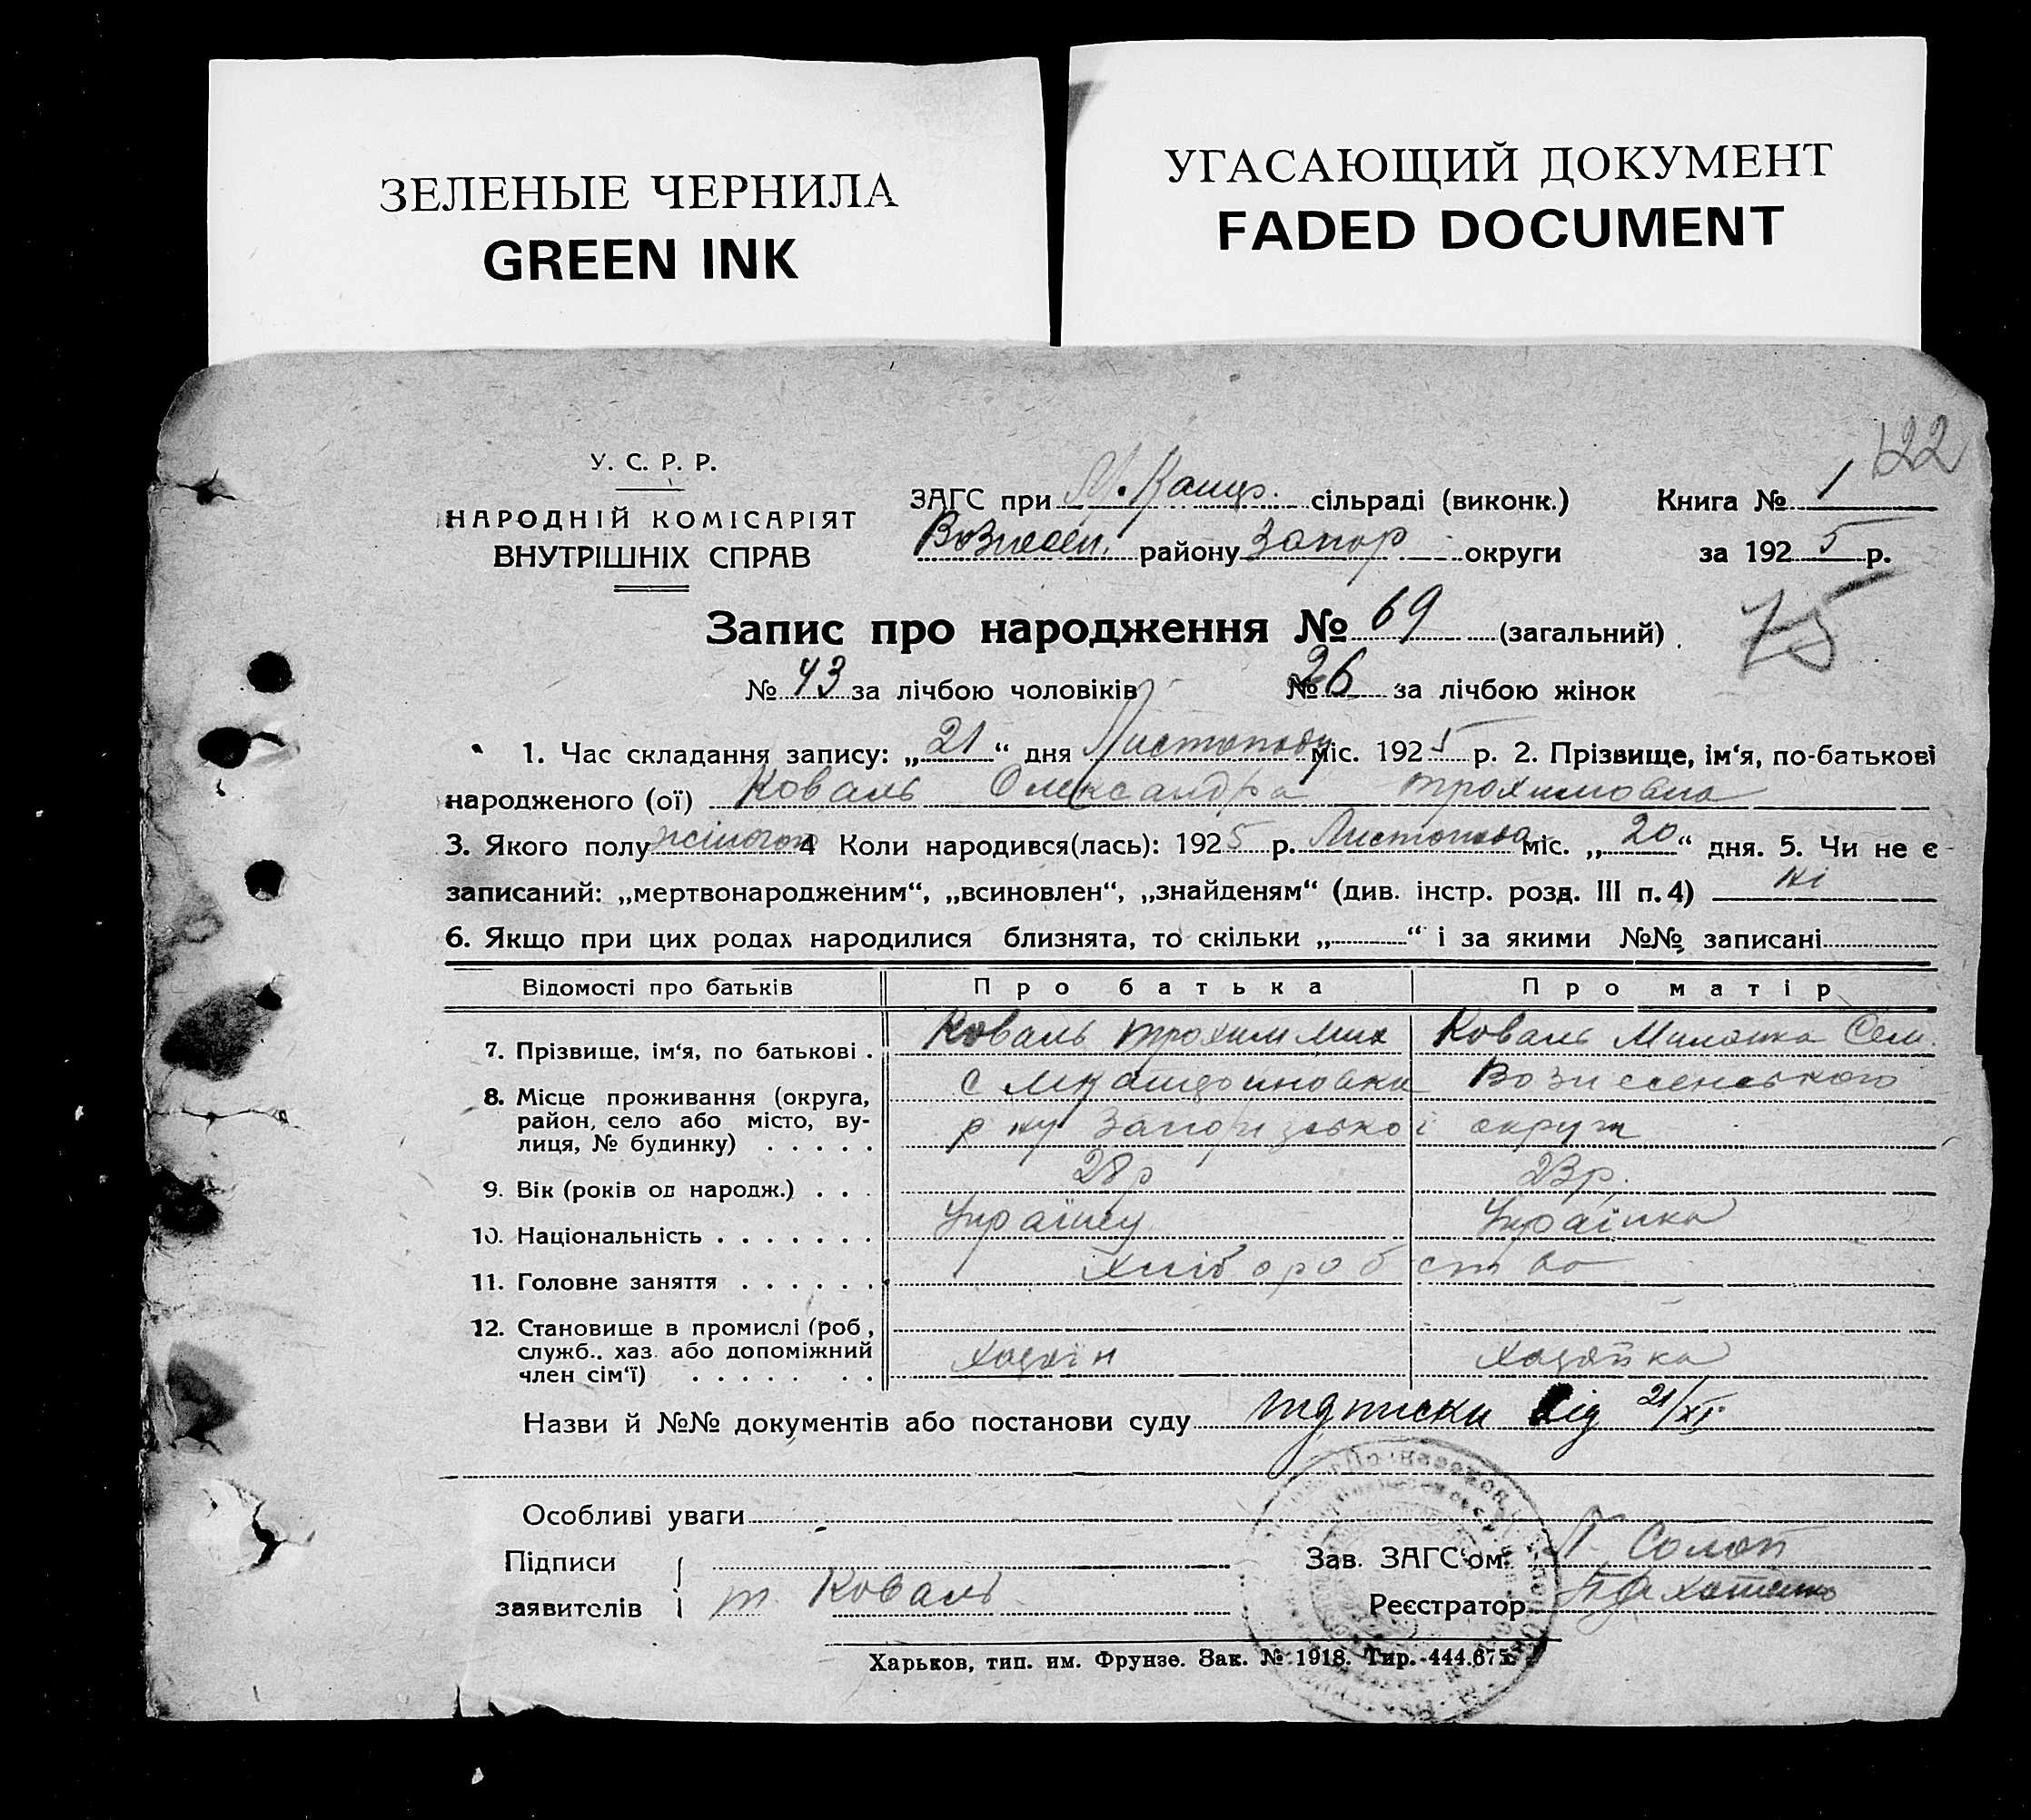 ЗЕЛЕНЫЕ ЧЕРНИЛА
GREEN INK
УГАСАЮЩИЙ ДОКУМЕНТ
FADED DOCUMENT
122
У. С. Р. Р.
НАРОДНІЙ КОМІСАРІЯТ
ВНУТРІШНІХ СПРАВ
ЗАГС при М. Канцр. сільраді (виконк.) Книга № 1
Вознесен. району Запор округи за 1925 р.
Запис про народження № 69 (загальний)
75
№ 43 за лічбою чоловіків № 26 за лічбою жінок
1. Час складання запису: „21“ дня Листопаду міс. 1925 р. 2. Прізвище, ім‘я, по-батькові
народженого (ої) Коваль Олександра Трохимовна
3. Якого полу жіночого 4 Коли народився(лась): 1925 р. Листопада міс. „20“ дня. 5. Чи не є
записаний: „мертвонародженим“, „всиновлен“, „знайденям“ (див. інстр. розд. III п. 4) ні
6. Якщо при цих родах народилися близнята, то скільки „ “ і за якими №№ записані
Відомості про батьків Про батька Про матір
7. Прізвище, ім‘я, по батькові . Коваль Трохим Мих Коваль Миланка Сем.
8. Місце проживання (округа, с Вознесенського
район, село або місто, ву- р ну Запорізської округи
лиця, № будинку) . . . . .
9. Вік (років од народж.) . . . 28 р 23 р.
10. Національність . . . . . . . Українец Українка
11. Головне заняття . . . . . . Хліборобство
12. Становище в промислі (роб,
служб., хаз. або допоміжний Хазяїн Хазяйка
член сім‘ї) . . . . . . .
Назви й №№ документів або постанови суду підписки від 21/XI
Особливі уваги
Підписи Зав. ЗАГС‘ом: Солоп
заявителів т. Коваль Реєстратор
Харьков, тип. им. Фрунзе. Зак. № 1918. Тир. 444.675